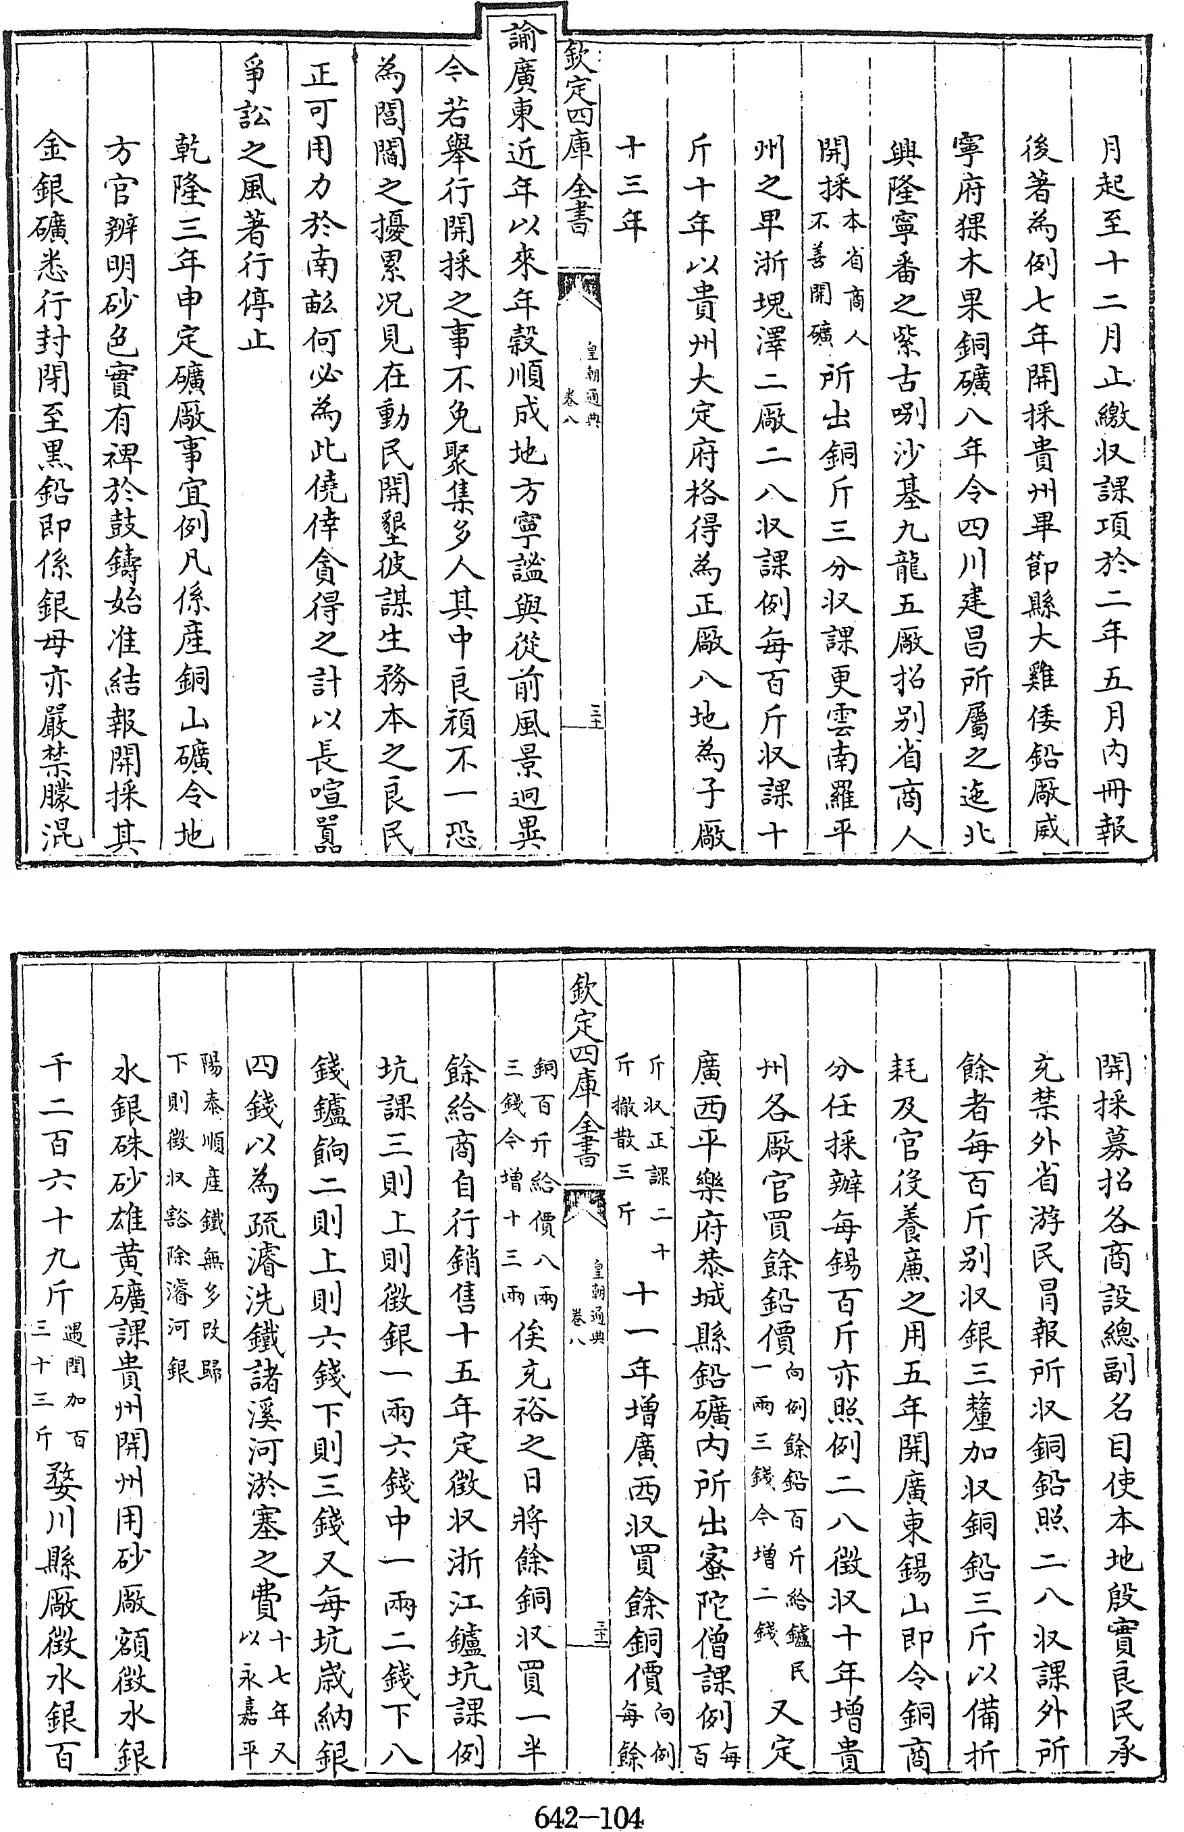 月起至十二月止繳収課項於二年五月内冊報
後著為例七年開採貴州畢節縣大雞倭鉛厰威
寧府猓木果銅礦八年令四川建昌所屬之迤北
興隆寧番之紫古哵沙基九龍五厰招别省商人
開採本省商人不善開礦所出銅斤三分収課更雲南羅平
州之卑浙塊澤二厰二八収課例每百斤収課十
斤十年以貴州大定府格得為正厰八地為子厰
十三年
欽定四庫全書
皇朝通典
卷八
三十
諭廣東近年以來年穀順成地方寧謐與從前風景迥異
今若舉行開採之事不免聚集多人其中良頑不一恐
為閭閻之擾累况見在動民開墾彼謀生務本之良民
正可用力於南畝何必為此僥倖貪得之計以長喧囂
爭訟之風著行停止
乾隆三年申定礦厰事宜例凡係產銅山礦令地
方官辦明砂色實有裨於鼓鑄始准結報開採其
金銀礦悉行封閉至黑鉛即係銀母亦嚴禁朦混
開採募招各商設總副名目使本地殷實良民承
充禁外省游民冒報所収銅鉛照二八収課外所
餘者每百斤别収銀三釐加収銅鉛三斤以備折
耗及官役養廉之用五年開廣東錫山即令銅商
分任採辦每錫百斤亦照例二八徵収十年增貴
州各厰官買餘鉛價向例餘鉛百斤給鑪民一兩三錢今增二錢又定
廣西平樂府恭城縣鉛礦内所出蜜陀僧課例每百
斤収正課二十斤撤散三斤十一年增廣西収買餘銅價向例每餘
欽定四庫全書
皇朝通典
卷八
三十一
銅百斤給價八兩三錢今增十三兩俟充裕之日將餘銅収買一半
餘給商自行銷售十五年定徵収浙江鑪坑課例
坑課三則上則徵銀一兩六錢中一兩二錢下八
錢鑪餉二則上則六錢下則三錢又每坑歲納銀
四錢以為疏濬洗鐵諸溪河淤塞之費十七年又以永嘉平
陽泰順產鐵無多改歸下則徵収豁除濬河銀
水銀硃砂雄黄礦課貴州開州用砂厰額徵水銀
千二百六十九斤遇閏加百三十三斤婺川縣厰徵水銀百
642-104